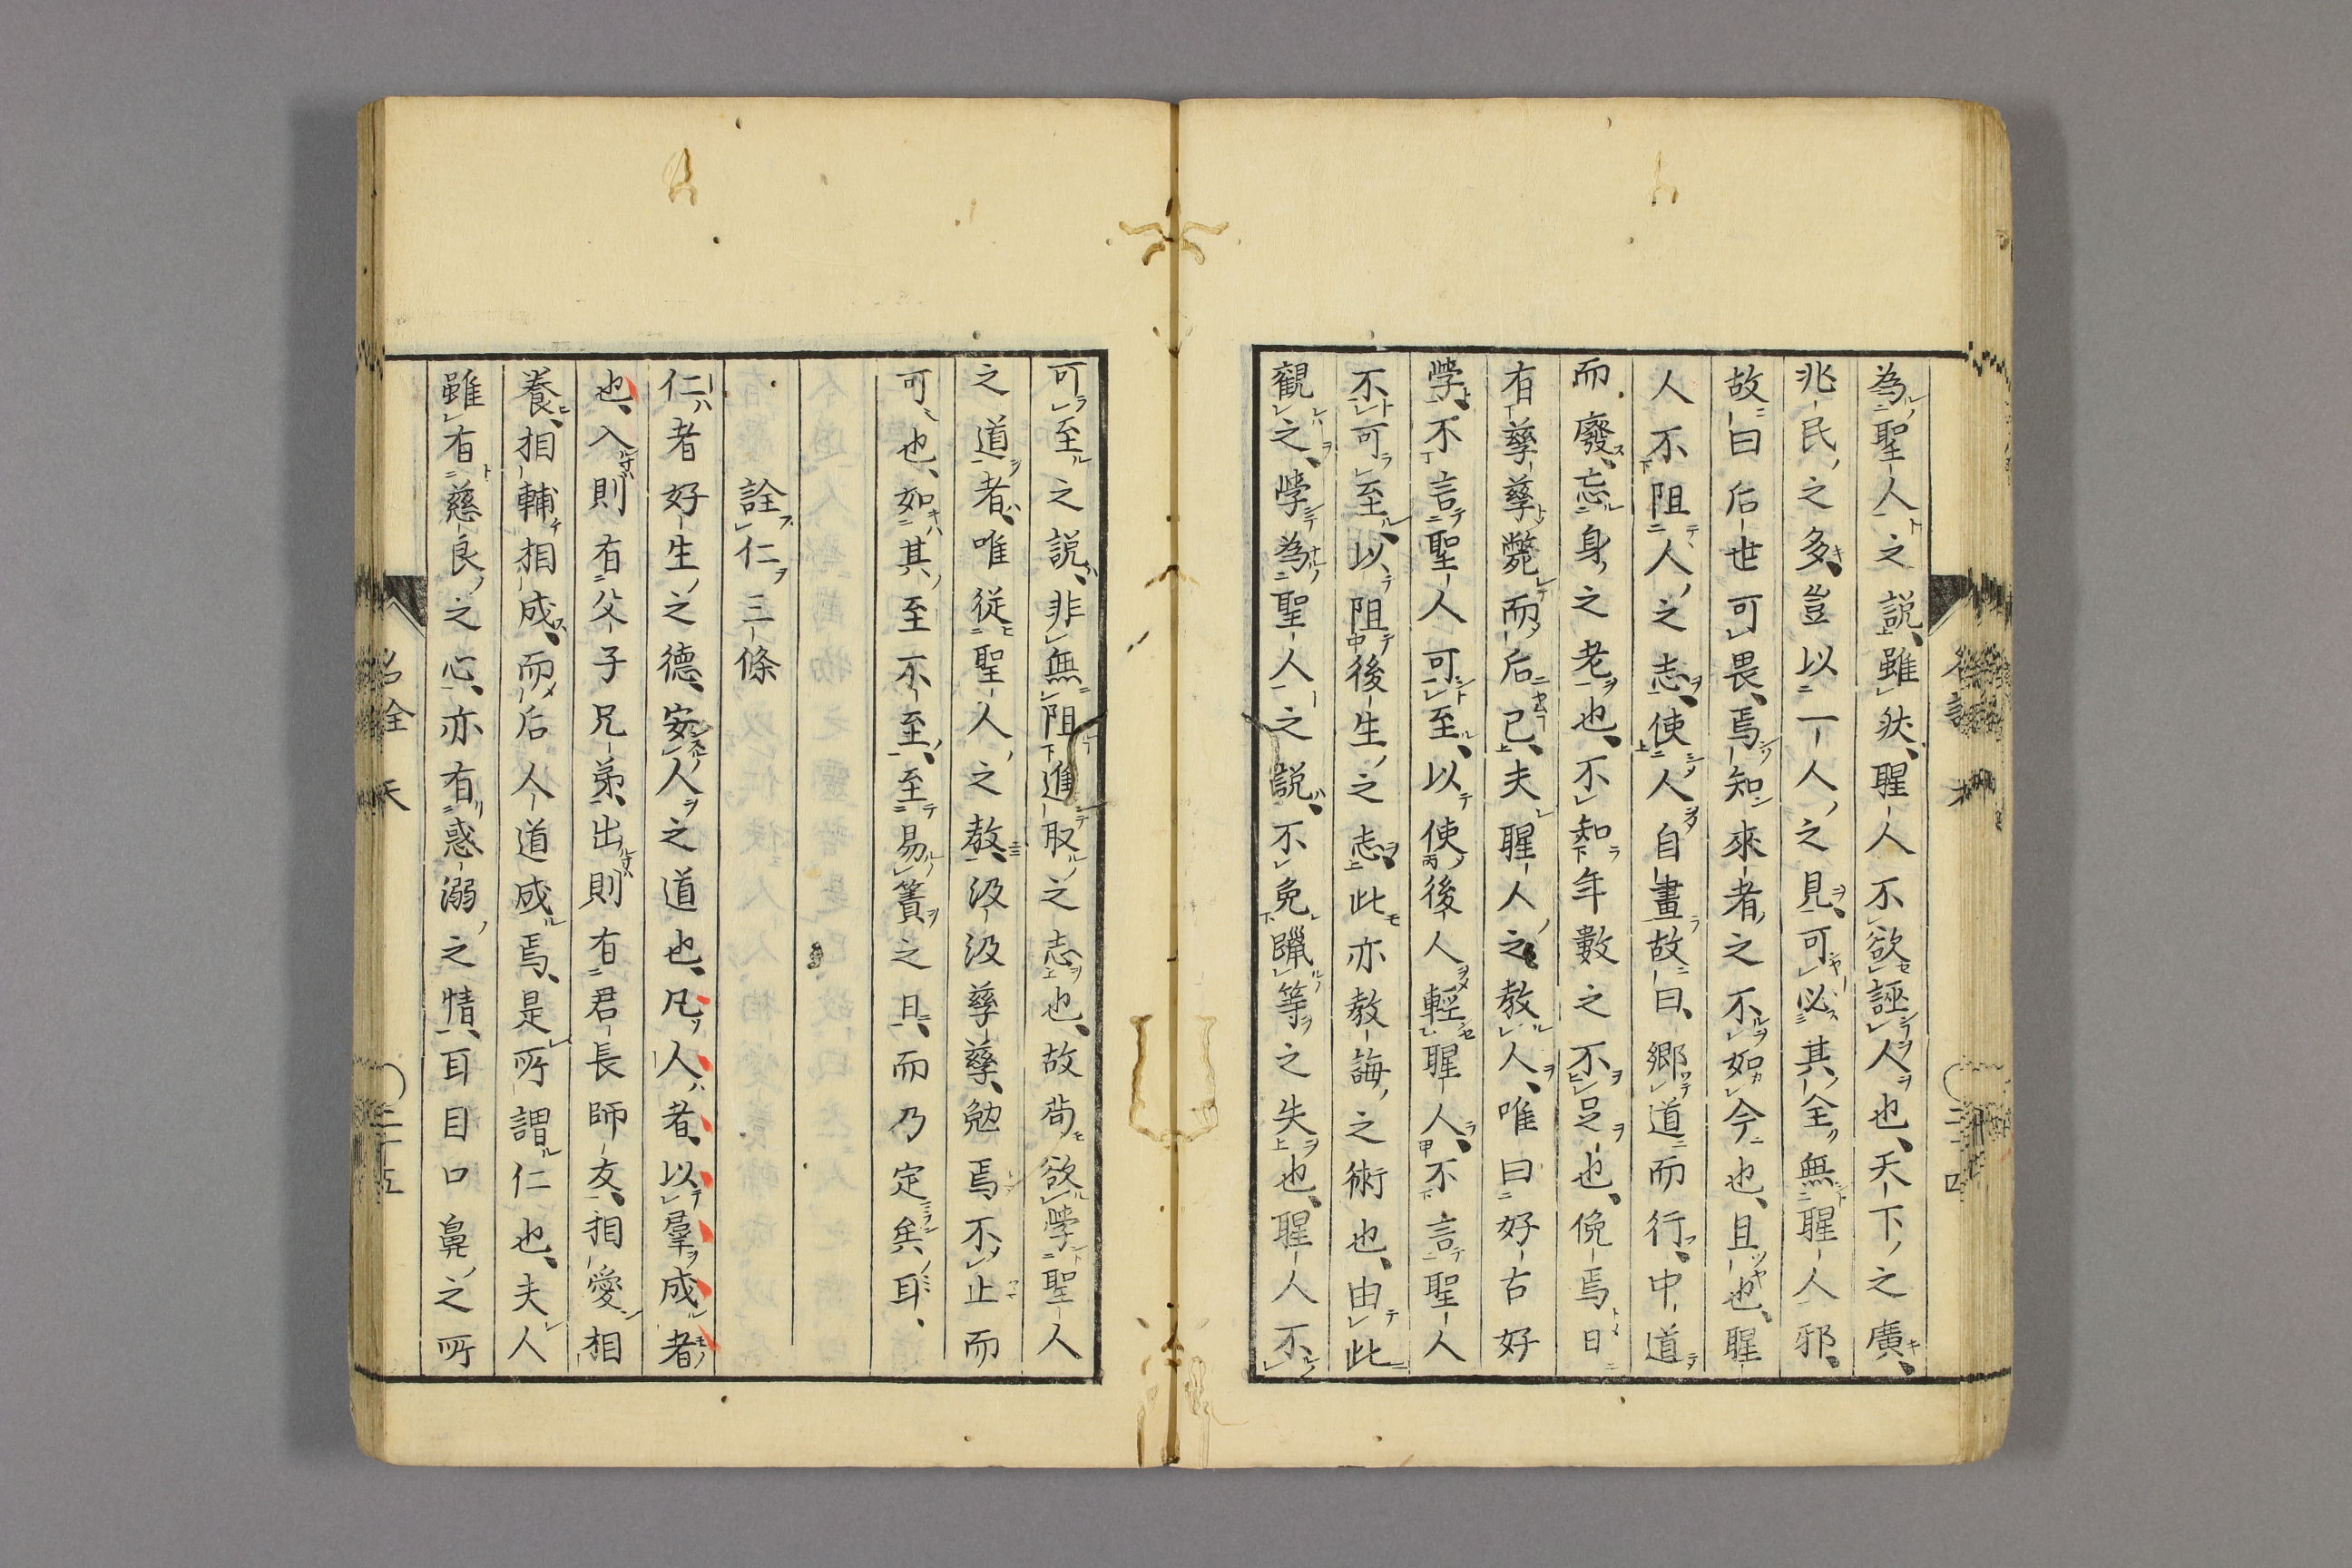 為聖人之説、雖然、聖人不欲誣人也、天下之廣、
兆民之多、豈以一人之見、可必其全無聖人邪、
故曰后世可畏、焉知來者之不如今也、且也、聖
人不阻人之志、使人自畫、故曰、郷道而行、中道
而廢、忘身之老也、不知年數之不足也、俛焉日
有孳孳斃而后已、夫聖人之教人、唯曰好古好
學、不言聖人可至、以使後人輕聖人、不言聖人
不可至、以阻後生之志、此亦教誨之術也、由此
觀之、學為聖人之説、不免躐等之失也、聖人不
可至之説、非無阻進取之志也、故苟欲學聖人
之道者、唯從聖人之教、汲汲孳孳、勉焉不止而
可也、如其至不至、至易簀之日、而乃定矣耳、
詮仁三條
仁者好生之德、安人之道也、凡人者、以羣成者
也、入則有父子兄弟、出則有君長師友、相愛相
養、相輔相成、而后人道成焉、是所謂仁也、夫人
雖有慈良之心、亦有惑溺之情、耳目口鼻之所
名詮 天
二十四
二十五